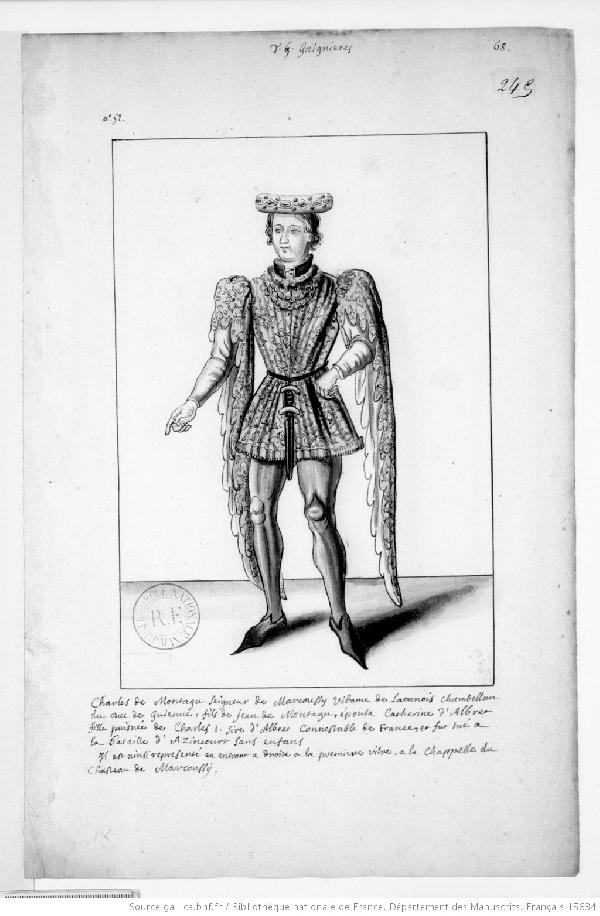 V. g. Gaignieres
68.
249
n.° 52.
BIBLIOTHEQUE NATIONALE
R.F.
MAN
Charles de Montagu Seigneur de Marcoussy Vidame de Laonnois chambellan
du Duc de Guienne, fils de Jean de Montagu, épousa Catherine d'Albret
fille puisnée de Charles 1. Sire d'Albret Connestable de France, et fut tué a
la bataille d'Azincourt sans enfans
Il est ainsi representé en entrant a droite a la premiere vitre, a la Chappelle du
Chasteau de Marcoussy.
Source gallica.bnf.fr / Bibliothèque nationale de France. Département des Manuscrits. Français 15634